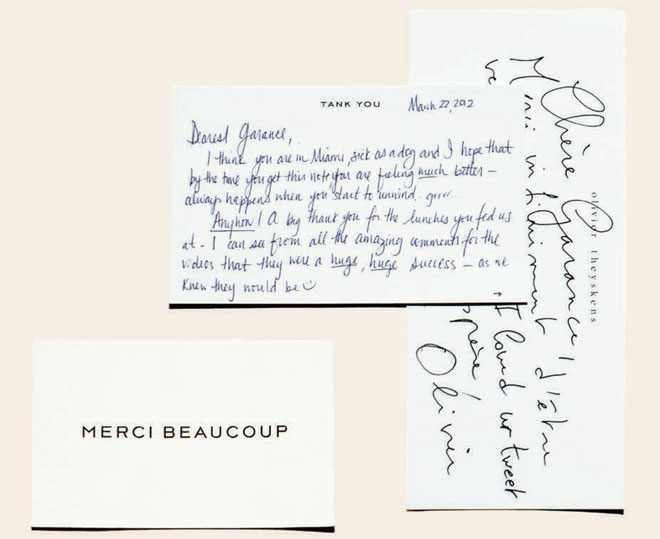 TANK YOU
March 22, 2012
Dearest Garance,
I think you are in Miami, sick as a dog and I hope that
by the time you get this note you are feeling much better –
always happens when you start to unwind.. grrr...
Anyhow! A big thank you for the lunches you fed us
at – I can see from all the amazing comments for the
videos that they were a huge, huge success – as we
knew they would be ☺
MERCI BEAUCOUP
olivier theyskens
Chère Garance,
Merci infiniment d'être
ve Loved ur tweet
Olivier